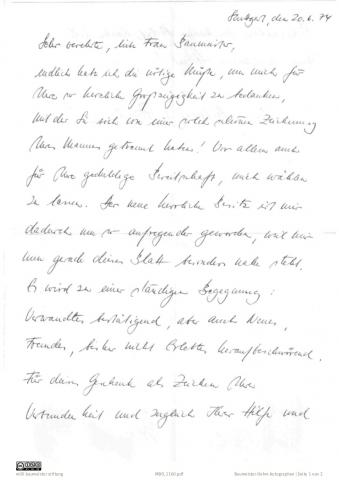 Stuttgart, den 20.6.74
Sehr verehrte, liebe Frau Baumeister,
endlich habe ich die nötige Muße, um mich für
Ihre so herzliche Großzügigkeit zu bedanken,
mit der Sie sich von einer solch schönen Zeichnung
Ihres Mannes getrennt haben! Vor allem auch
für Ihre geduldige Bereitschaft, mich wählen
zu lassen. Der neue herrliche Besitz ist mir
dadurch um so aufregender geworden, weil mir
nun gerade dieses Blatt besonders nahe steht.
Es wird zu einer ständigen Begegnung:
Verwandtes bestätigend, aber auch Neues,
Fremdes, bisher nicht Erlebtes heraufbeschwörend.
Für dieses Geschenk als Zeichen Ihrer
Verbundenheit und zugleich Ihrer Hilfe und
willi baumeister stiftung
Baumeister-Archiv Autographen | Seite 1 von 2